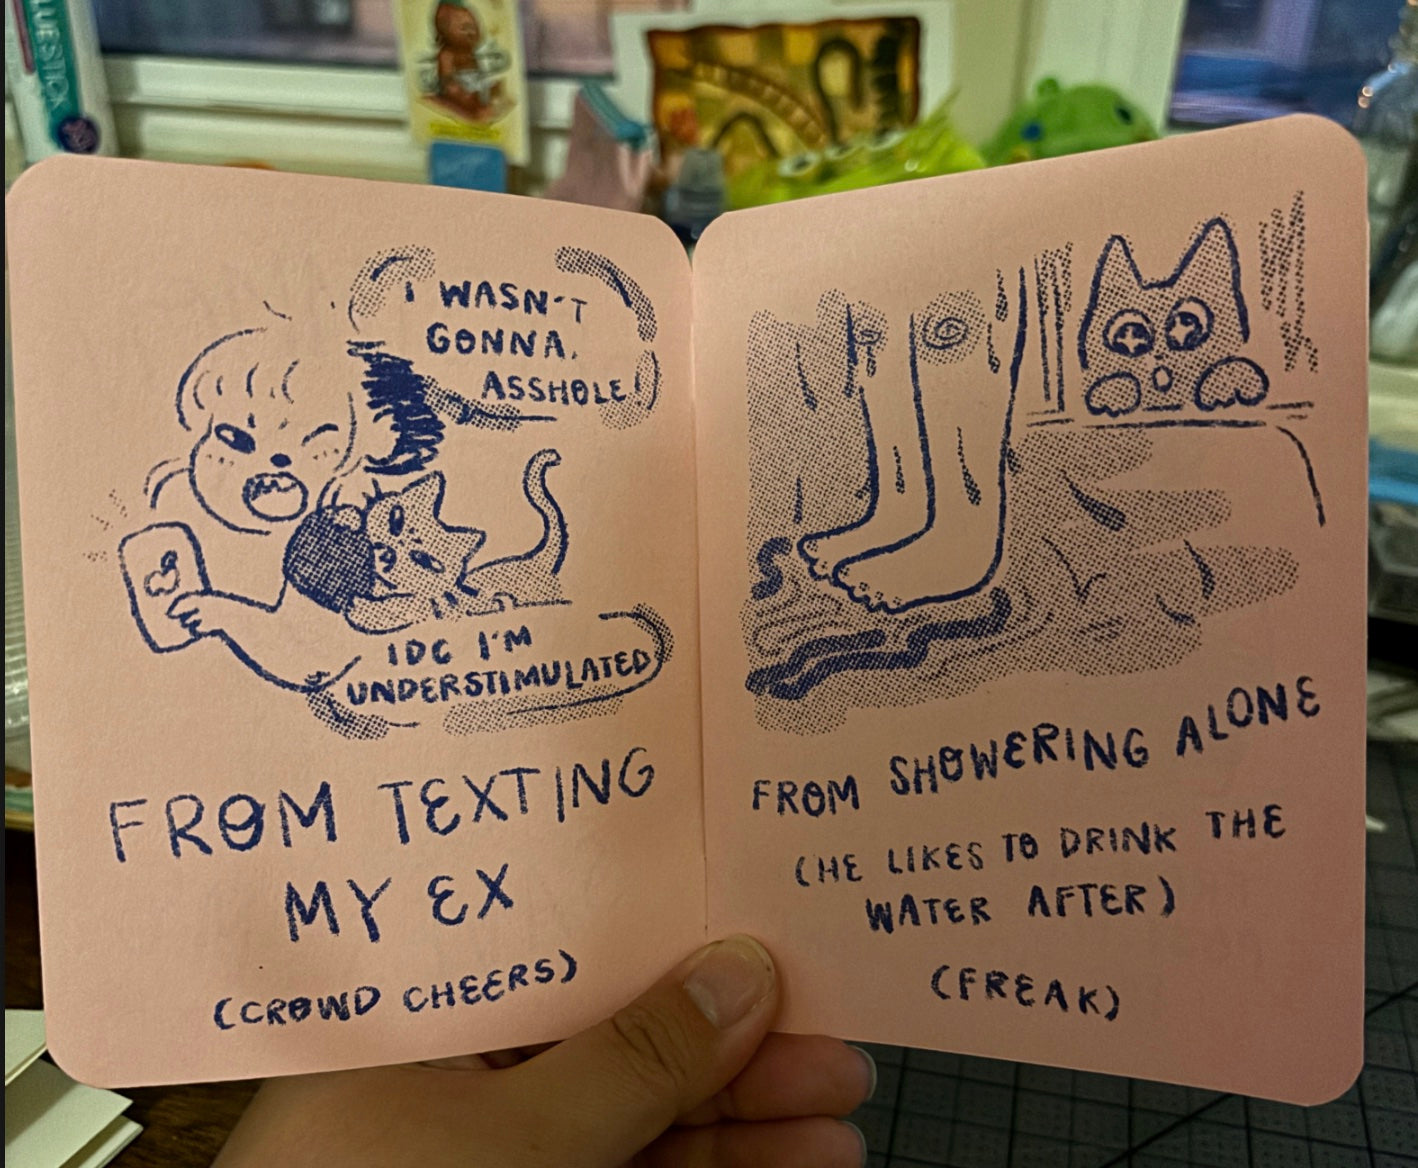 LUESTICK
I WASN'T
GONNA,
ASSHOLE!
IDC I'M
UNDERSTIMULATED
FROM TEXTING
MY EX
(CROWD CHEERS)
FROM SHOWERING ALONE
(HE LIKES TO DRINK THE
WATER AFTER)
(FREAK)